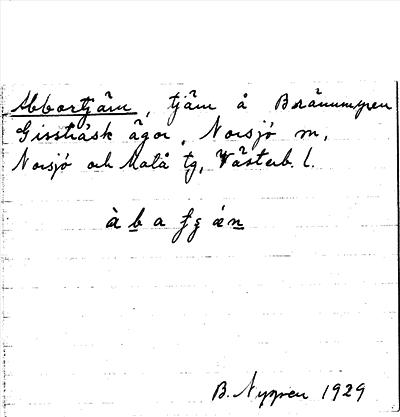 Abbortjärn, tjärn å Brännmyren
Gissträsk ägor, Norsjö sn,
Norsjö och Malå tg, Västerb. l.
à b a f g ä n
B. Nygren 1929